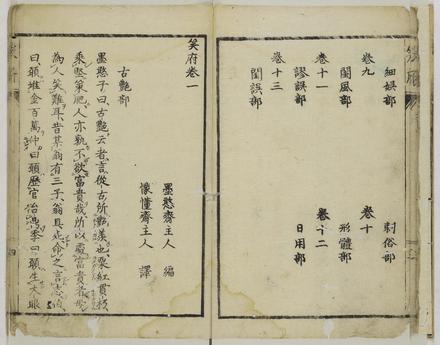 細娯部　刺俗部
卷九　卷十
閨風部　形體部
卷十一　卷十二
謬誤部　日用部
卷十三
閏誤部
笑府卷一
墨憨齋主人　編
像憧齋主人　譯
古艷部
墨憨子曰古艷云者言從古所艷羨也粟紅貫朽
乘堅策肥人亦孰不欲富貴哉所以處富貴者毋
為人笑難耳昔某翁有三子翁具命之言志伯
曰願堆金百萬仲曰願歷官季曰願生大眼